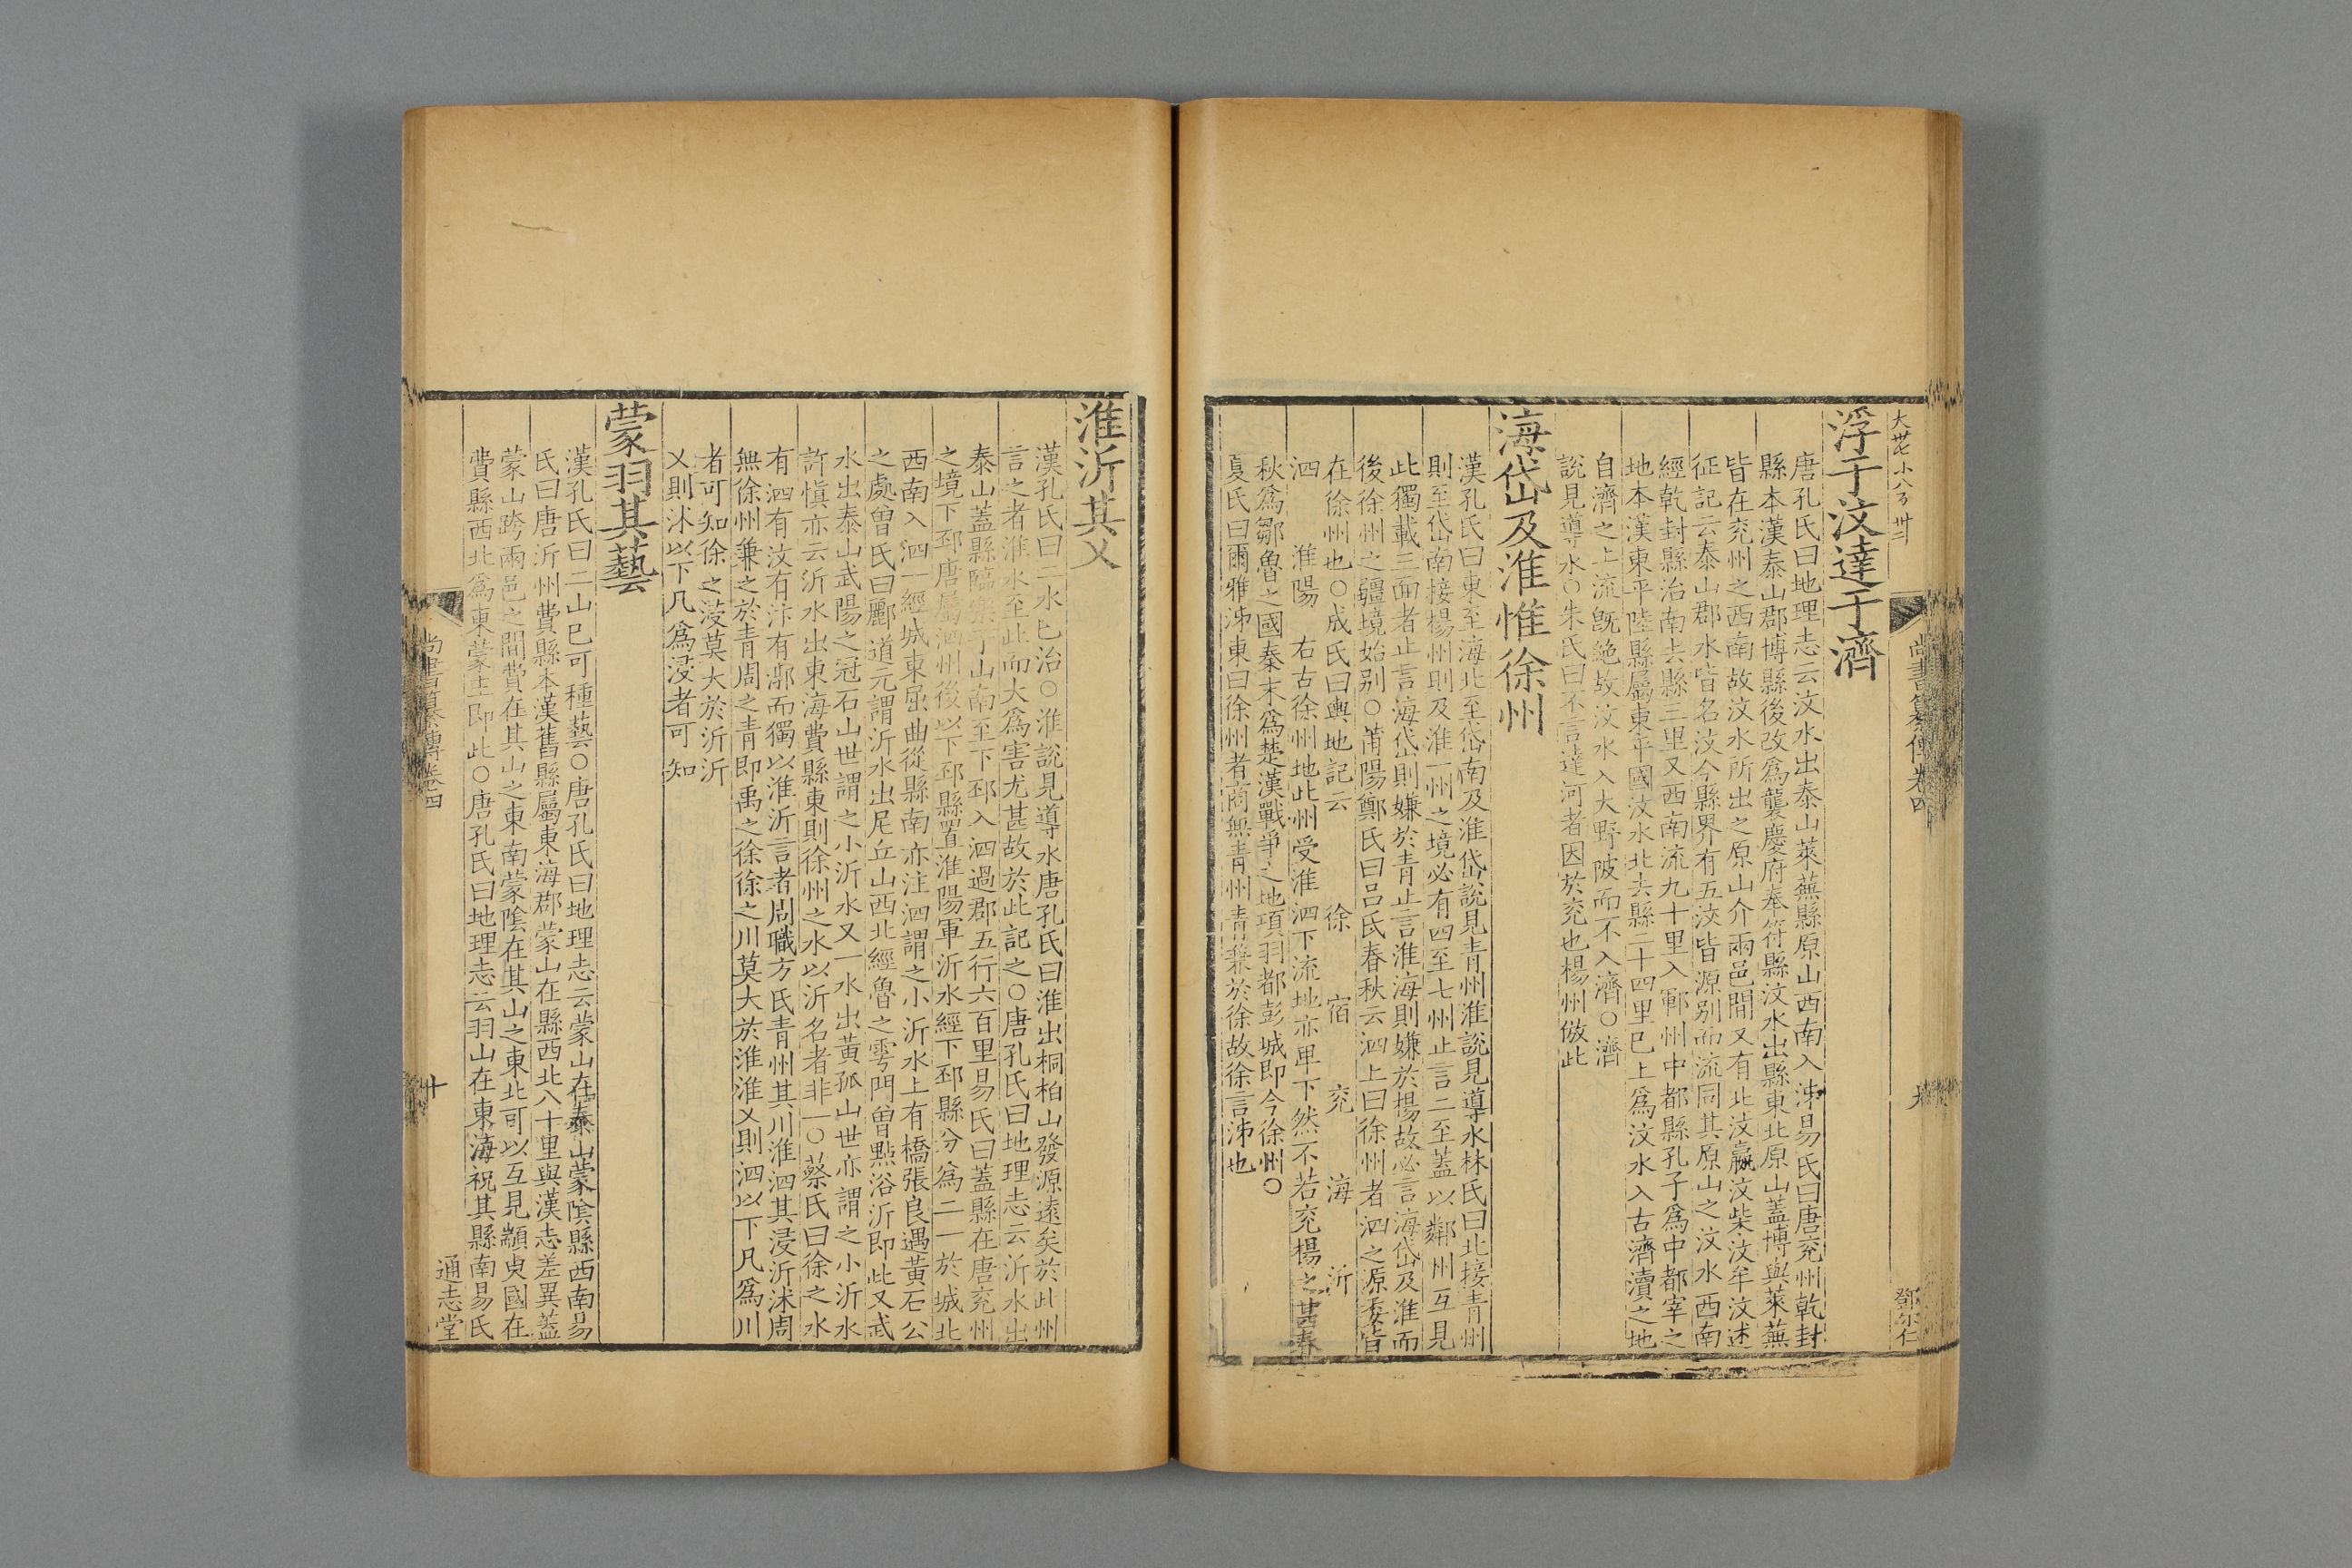 浮于汶達于濟
唐孔氏曰地理志云汶水出泰山萊蕪縣原山西南入泲易氏曰唐兖州乾封
縣本漢泰山郡博縣後改爲龔慶府奉符縣汶水出縣東北原山蓋博與萊蕪
皆在兖州之西南故汶水所出之原山介兩邑間又有北汶嬴汶柴汶牟汶述
征記云泰山郡水皆名汶今縣界有五汶皆源别而流同其原山之汶水西南
經乾封縣治南去縣三里又西南流九十里入鄆州中都縣孔子爲中都宰之
地本漢東平陸縣屬東平國汶水北去縣二十四里巳上爲汶水入古濟瀆之地
自濟之上流旣絶故汶水入大野陂而不入濟○濟
說見導水○朱氏曰不言達河者因於兖也楊州倣此
海岱及淮惟徐州
漢孔氏曰東至海北至岱南及淮岱說見青州淮說見導水林氏曰北接青州
則至岱南接楊州則及淮一州之境必有四至七州止言二至蓋以鄰州互見
此獨載三面者止言海岱則嫌於青止言淮海則嫌於揚故必言海岱及淮而
後徐州之疆境始别○莆陽鄭氏曰吕氏春秋云泗上曰徐州者泗之源委皆
在徐州也○成氏曰輿地記云 徐 宿 兖 海 沂
泗 淮陽 右古徐州地此州受淮泗下流地亦卑下然不若兖楊之甚春
秋爲鄒魯之國秦末爲楚漢戰爭之地項羽都彭城即今徐州○
夏氏曰爾雅泲東曰徐州者商無青州青兼於徐故徐言泲也
淮沂其乂
漢孔氏曰二水巳治○淮說見導水唐孔氏曰淮出桐柏山發源遠矣於此州
言之者淮水至此而大爲害尤甚故於此記之○唐孔氏曰地理志云沂水出
泰山蓋縣臨樂子山南至下邳入泗過郡五行六百里易氏曰蓋縣在唐兖州
之境下邳唐屬泗州後以下邳縣置淮陽軍沂水經下邳縣分爲二一於城北
西南入泗一經城東屈曲從縣南亦注泗謂之小沂水上有橋張良遇黄石公
之處曾氏曰酈道元謂沂水出尼丘山西北經魯之雩門曾點浴沂即此又武
水出泰山武陽之冠石山世謂之小沂水又一水出黄孤山世亦謂之小沂水
許愼亦云沂水出東海費縣東則徐州之水以沂名者非一○蔡氏曰徐之水
有泗有汶有汴有漷而獨以淮沂言者周職方氏青州其川淮泗其浸沂沭周
無徐州兼之於青周之青即禹之徐徐之川莫大於淮淮乂則泗以下凡爲川
者可知徐之浸莫大於沂沂
乂則沭以下凡爲浸者可知
蒙羽其藝
漢孔氏曰二山巳可種藝○唐孔氏曰地理志云蒙山在泰山蒙隂縣西南易
氏曰唐沂州費縣本漢舊縣屬東海郡蒙山在縣西北八十里與漢志差異蓋
蒙山跨兩邑之間費在其山之東南蒙隂在其山之東北可以互見顓臾國在
費縣西北爲東蒙主即此○唐孔氏曰地理志云羽山在東海祝其縣南易氏
尚書纂傳卷四
十
通志堂